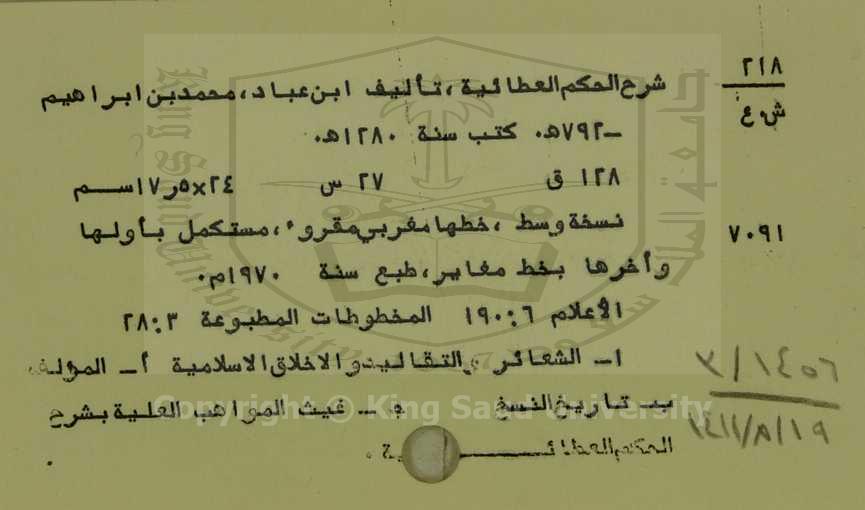 ٢١٨
ش٠ع
شرح الحكم العطائية ، تأليف ابن عباد ، محمد بن ابراهيم
ـ٧٩٢هـ٠ كتب سنة ١٢٨٠هـ٠
١٢٨ ق ٢٧ س ٢٤×٥ر١٧سم
٧٠٩١
نسخة وسط ، خطها مغربي مقروء ، مستكمل بأولها
وأخرها بخط مغاير ، طبع سنة ١٩٧٠م٠
الأعلام ٦ : ١٩٠ المخطوطات المطبوعة ٣ : ٢٨
١ـ الشعائر والتقاليد والاخلاق الاسلامية أ ـ المؤلف
ب ـ تاريخ النسخ ج ـ غيث المواهب العلية بشرح
الحكم العطائـــية ٠
٣/١٤٥٦
١٤١١/٨/١٩
Copyright © King Saud University